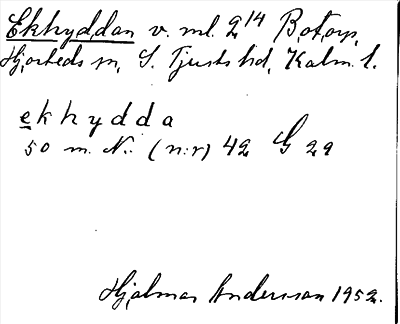 Ekhyddan v. ml. 2¹⁴ Botorp,
Hjorteds sn, S. Tjusts hd, Kalm. l.
ekhydda
50 m. N. (n:r) 42 G 29
Hjalmar Andersson 1952.